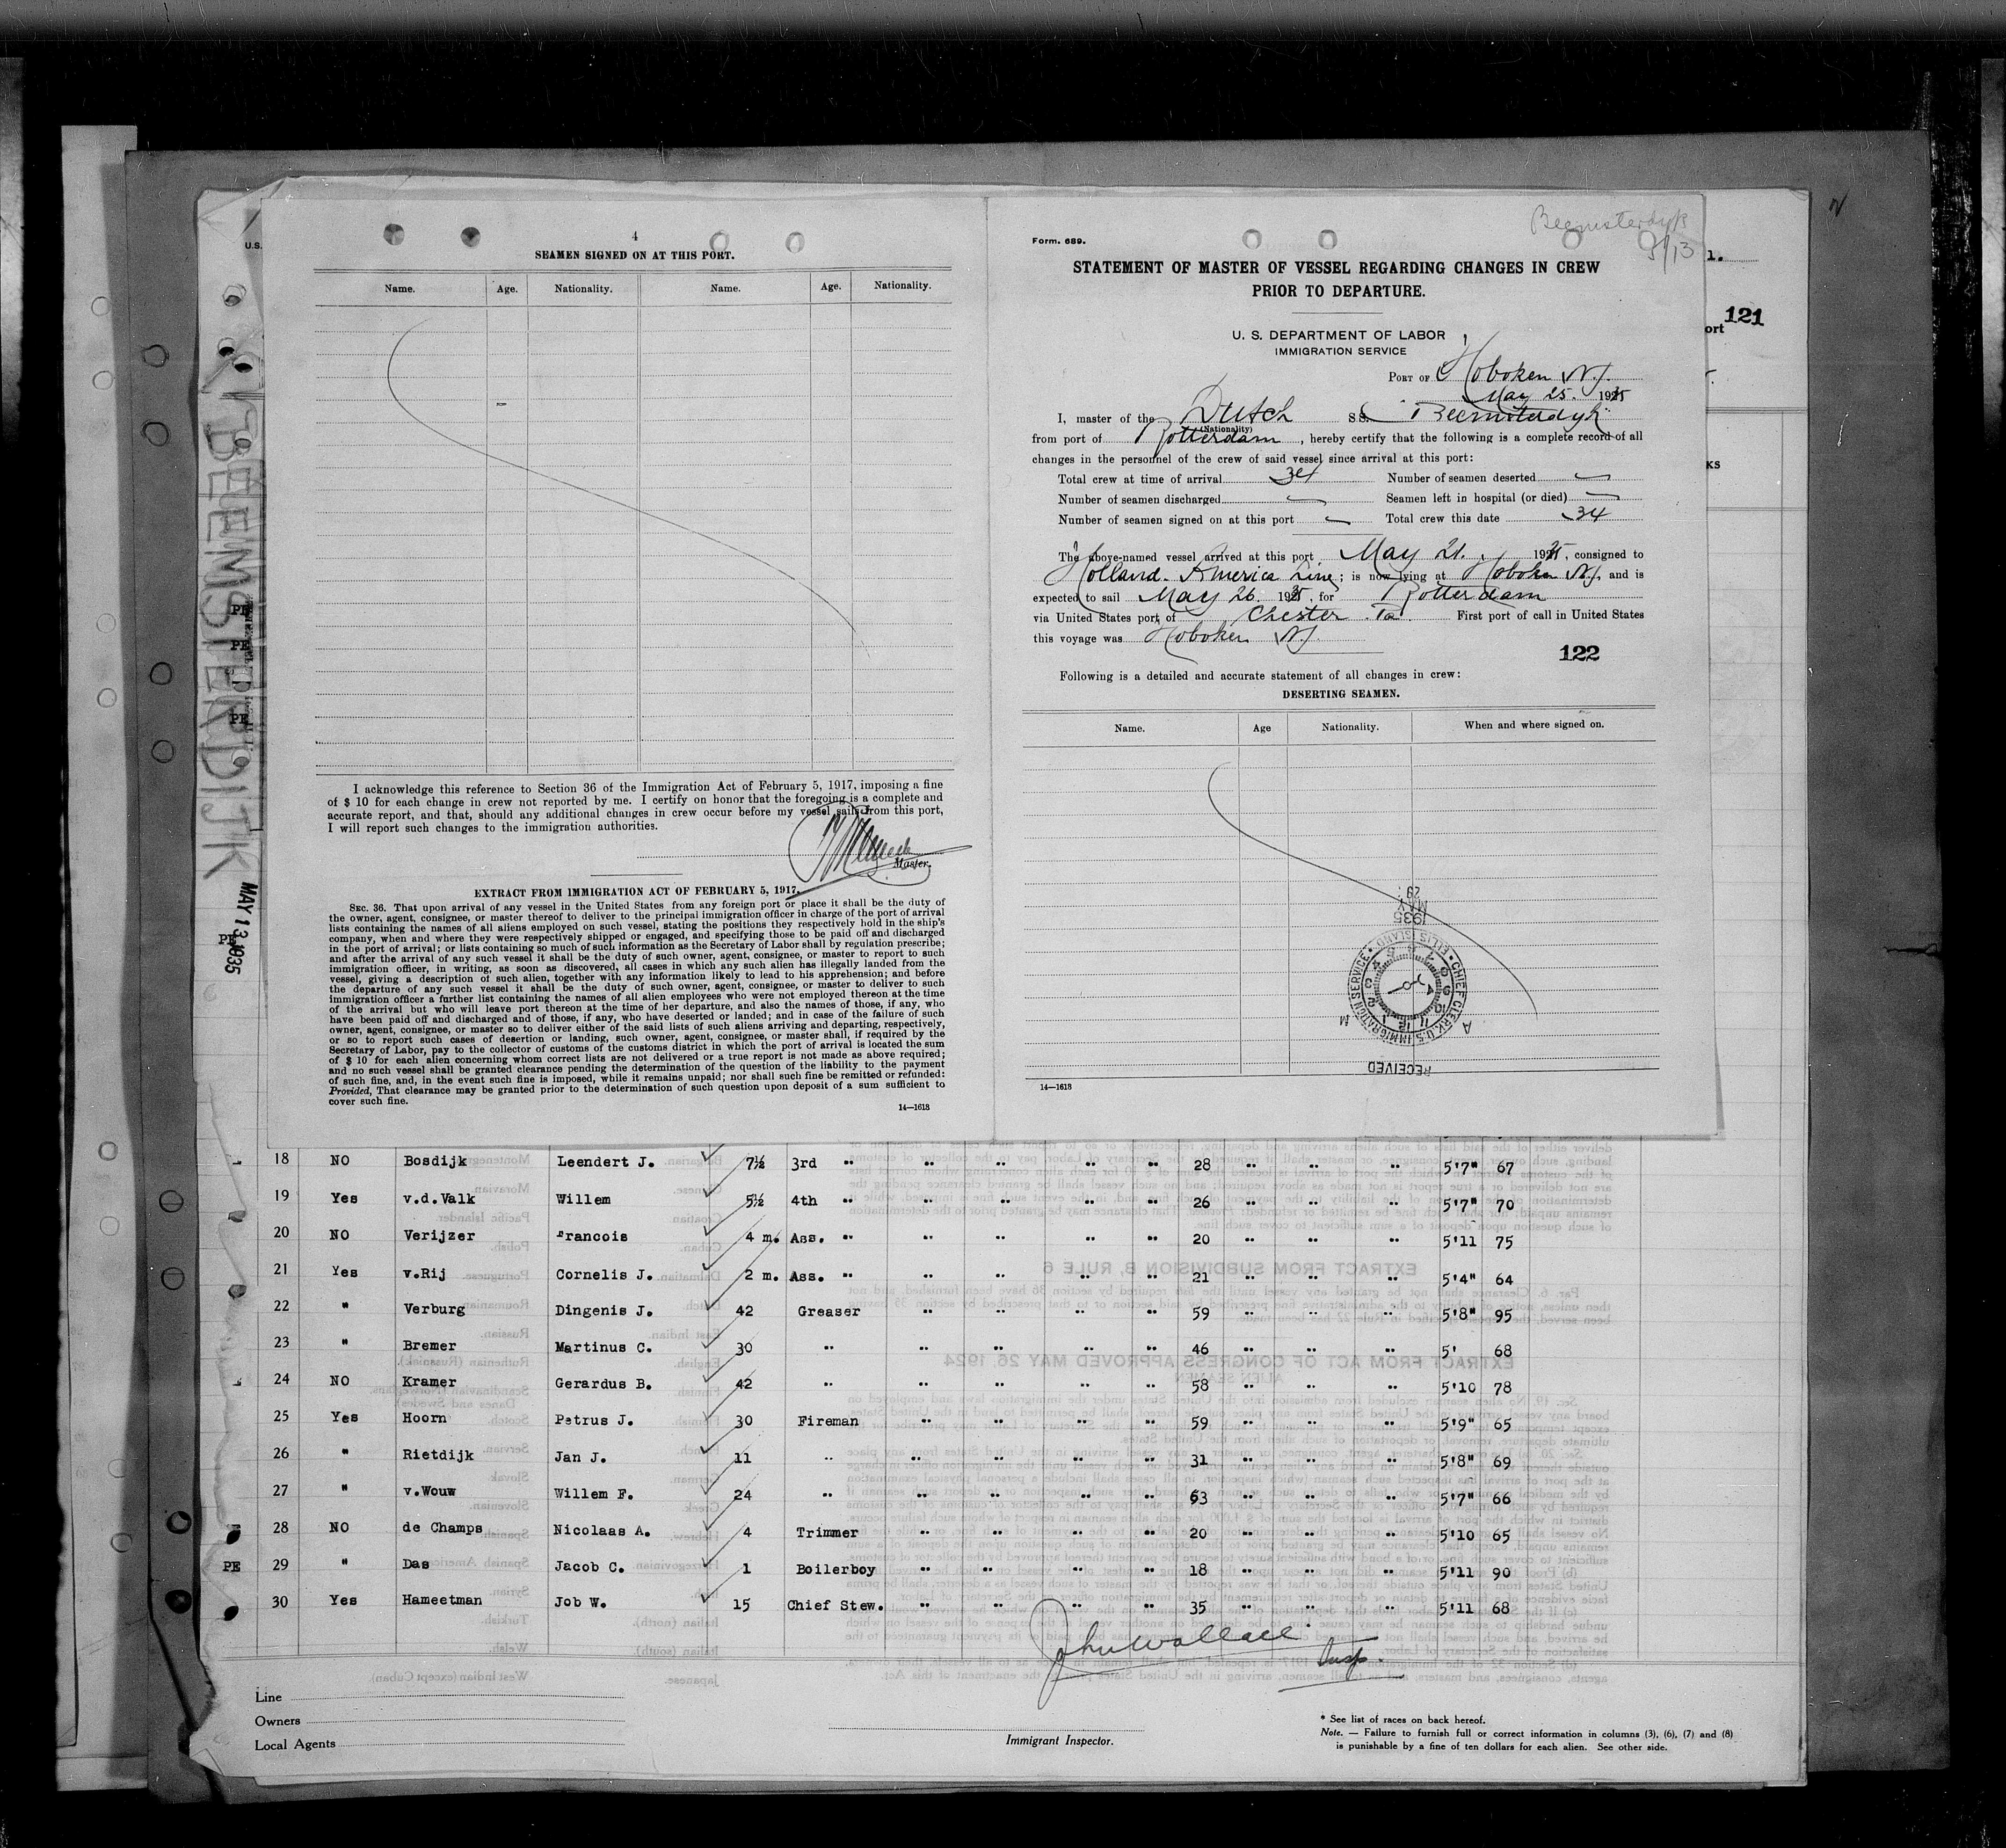 Beemsterdyk
5/13
4
SEAMEN SIGNED ON AT THIS PORT.
Name. Age. Nationality. Name. Age. Nationality.
I acknowledge this reference to Section 36 of the Immigration Act of February 5, 1917, imposing a fine
of $ 10 for each change in crew not reported by me. I certify on honor that the foregoing is a complete and
accurate report, and that, should any additional changes in crew occur before my vessel sails from this port,
I will report such changes to the immigration authorities.
Master.
EXTRACT FROM IMMIGRATION ACT OF FEBRUARY 5, 1917.
SEC. 36. That upon arrival of any vessel in the United States from any foreign port or place it shall be the duty of
the owner, agent, consignee, or master thereof to deliver to the principal immigration officer in charge of the port of arrival
lists containing the names of all aliens employed on such vessel, stating the positions they respectively hold in the ship's
company, when and where they were respectively shipped or engaged, and specifying those to be paid off and discharged
in the port of arrival; or lists containing so much of such information as the Secretary of Labor shall by regulation prescribe;
and after the arrival of any such vessel it shall be the duty of such owner, agent, consignee, or master to report to such
immigration officer, in writing, as soon as discovered, all cases in which any such alien has illegally landed from the
vessel, giving a description of such alien, together with any information likely to lead to his apprehension; and before
the departure of any such vessel it shall be the duty of such owner, agent, consignee, or master to deliver to such
immigration officer a further list containing the names of all alien employees who were not employed thereon at the time
of the arrival but who will leave port thereon at the time of her departure, and also the names of those, if any, who
have been paid off and discharged and of those, if any, who have deserted or landed; and in case of the failure of such
owner, agent, consignee, or master so to deliver either of the said lists of such aliens arriving and departing, respectively,
or so to report such cases of desertion or landing, such owner, agent, consignee, or master shall, if required by the
Secretary of Labor, pay to the collector of customs of the customs district in which the port of arrival is located the sum
of $ 10 for each alien concerning whom correct lists are not delivered or a true report is not made as above required;
and no such vessel shall be granted clearance pending the determination of the question of the liability to the payment
of such fine, and, in the event such fine is imposed, while it remains unpaid; nor shall such fine be remitted or refunded:
Provided, That clearance may be granted prior to the determination of such question upon deposit of a sum sufficient to
cover such fine.
14—1618
Form. 689.
STATEMENT OF MASTER OF VESSEL REGARDING CHANGES IN CREW
PRIOR TO DEPARTURE.
U. S. DEPARTMENT OF LABOR
IMMIGRATION SERVICE
PORT OF Hoboken N.J.
May 25. 1935
I, master of the Dutch SS. Beemsterdyk
(Nationality)
from port of Rotterdam, hereby certify that the following is a complete record of all
changes in the personnel of the crew of said vessel since arrival at this port:
Total crew at time of arrival 34 Number of seamen deserted —
Number of seamen discharged — Seamen left in hospital (or died) —
Number of seamen signed on at this port — Total crew this date 34
The above-named vessel arrived at this port May 21. 1935, consigned to
Holland-America Line; is now lying at Hoboken N.J. and is
expected to sail May 26. 1935, for Rotterdam
via United States port of Chester Pa. First port of call in United States
this voyage was Hoboken N.J.
122
Following is a detailed and accurate statement of all changes in crew:
DESERTING SEAMEN.
Name. Age Nationality. When and where signed on.
1935
MAY
29
CHIEF CLERK, U.S. IMMIGRATION SERVICE • ELLIS ISLAND •
A M
RECEIVED
14—1618
U.S.
121
ort
KS
BEEMSTERDIJK
MAY 13 1935
PE
PE
PE
PE
18 NO Bosdijk Leendert J. 7½ 3rd " " " " " 28 " " " 5'7" 67
19 Yes v.d.Valk Willem 5½ 4th " " " " " 26 " " " 5'7" 70
20 NO Verijzer Francois 4 m. Ass. " " " " " 20 " " " 5'11 75
21 Yes v.Rij Cornelis J. 2 m. Ass. " " " " " 21 " " " 5'4" 64
22 " Verburg Dingenis J. 42 Greaser " " " " 59 " " " 5'8" 95
23 " Bremer Martinus C. 30 " " " " " 46 " " " 5' 68
24 NO Kramer Gerardus B. 42 " " " " " 58 " " " 5'10 78
25 Yes Hoorn Petrus J. 30 Fireman " " " " 59 " " " 5'9" 65
26 " Rietdijk Jan J. 11 " " " " " 31 " " " 5'8" 69
27 " v.Wouw Willem F. 24 " " " " " 53 " " " 5'7" 66
28 NO de Champs Nicolaas A. 4 Trimmer " " " " 20 " " " 5'10 65
PE 29 " Das Jacob C. 1 Boilerboy " " " " 18 " " " 5'11 90
30 Yes Hameetman Job W. 15 Chief Stew. " " " " 35 " " " 5'11 68
John Wallace
Insp.
Line
Owners
Local Agents
Immigrant Inspector.
* See list of races on back hereof.
Note. — Failure to furnish full or correct information in columns (3), (6), (7) and (8)
is punishable by a fine of ten dollars for each alien. See other side.